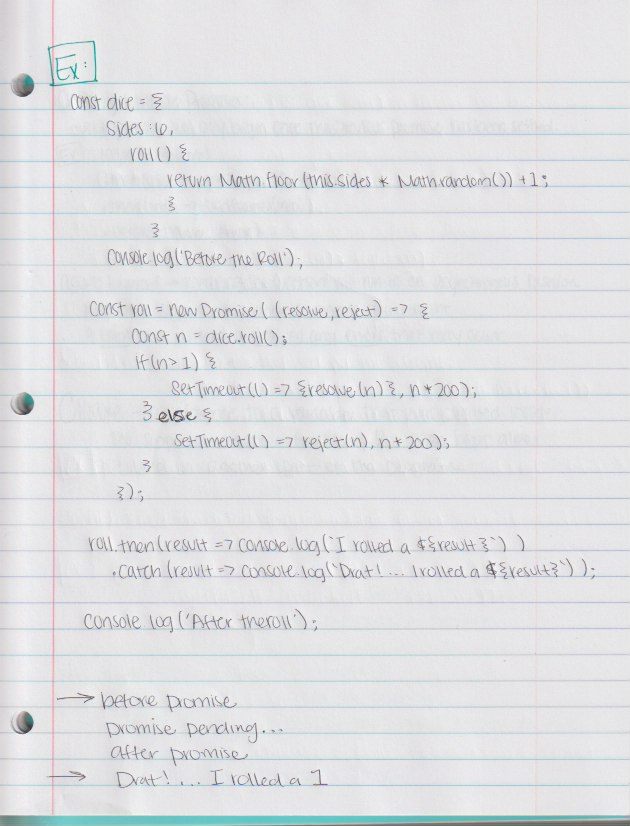 Ex:
Const dice = {
Sides: 6,
roll() {
return Math.floor(this.sides * Math.random()) + 1;
}
}
Console.log('Before the Roll');
Const roll = new Promise( (resolve, reject) => {
Const n = dice.roll();
if(n > 1) {
SetTimeout(() => {resolve(n)}, n*200);
} else {
SetTimeout(() => reject(n), n*200);
}
});
roll.then(result => console.log(`I rolled a ${result}`) )
.catch (result => console.log(`Drat! ... I rolled a ${result}`) );
Console.log('After the roll');
→ before promise
promise pending...
after promise
→ Drat! ... I rolled a 1